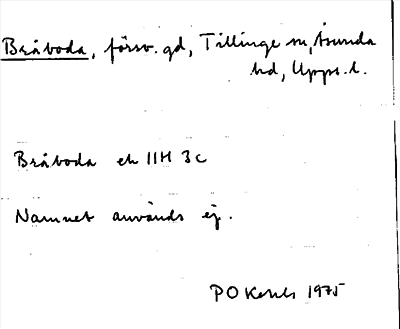 Bråboda, försv. gd, Tillinge sn, Åsunda
hd, Upps. l.
Bråboda ek 11H 3c
Namnet används ej.
PO 1975